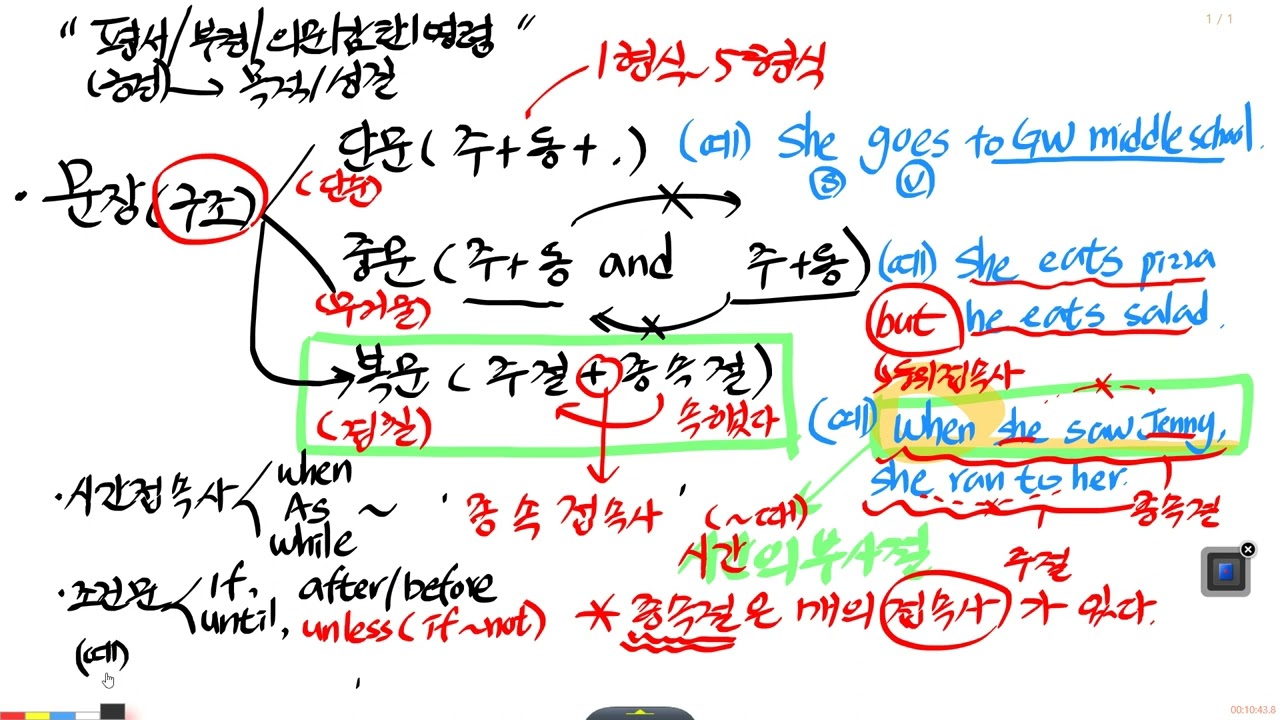 " 평서/부정/의문/감탄/명령 "
→ 목적/성질
1형식~5형식
· 문장(구조)
단문( 주+동+.)
(단순)
(예) She goes to GW middle school.
S V
중문 ( 주+동 and 주+동)
(무거울)
(예) She eats pizza
but he eats salad.
동의접속사
복문 ( 주절 + 종속절)
속해있다
(예) When she saw Jenny,
she ran to her.
종속절
주절
· 시간접속사
when
As
while
~ ' 종속접속사 '
(~때)
시간
시간의 부사절
· 조건문
If, after/before
until, unless( if~not)
* 종속절은 매의 접속사 가 있다.
(예)
1 / 1
00:10:43.8